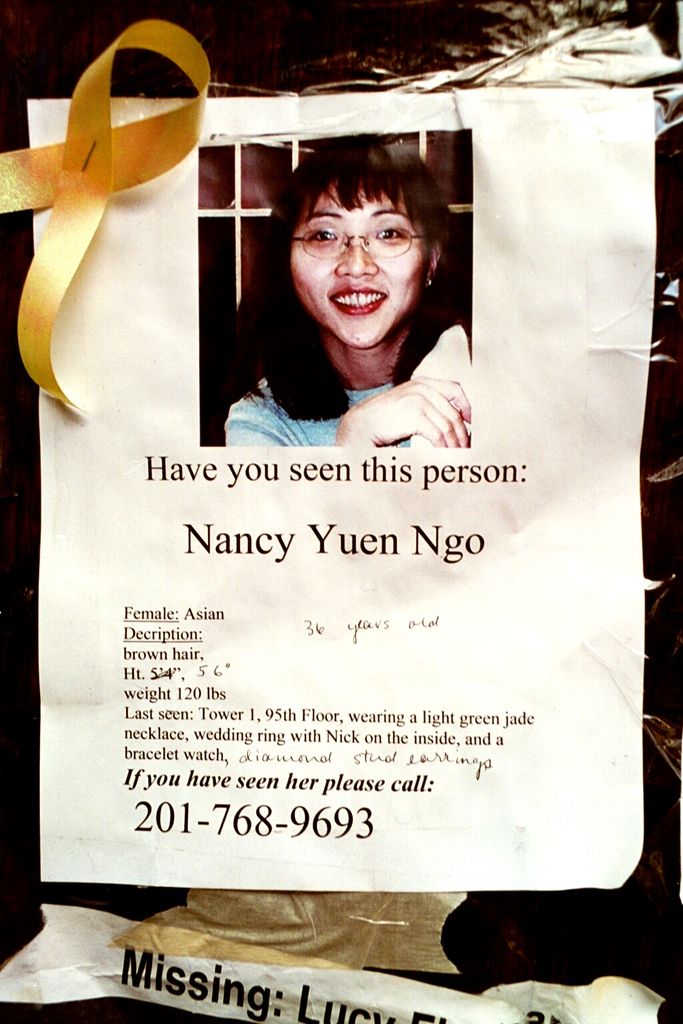 Have you seen this person:
Nancy Yuen Ngo
Female: Asian
36 years old
Decription:
brown hair,
Ht. 5'4", 5 6"
weight 120 lbs
Last seen: Tower 1, 95th Floor, wearing a light green jade
necklace, wedding ring with Nick on the inside, and a
bracelet watch, diamond stud earrings
If you have seen her please call:
201-768-9693
Missing: Lucy